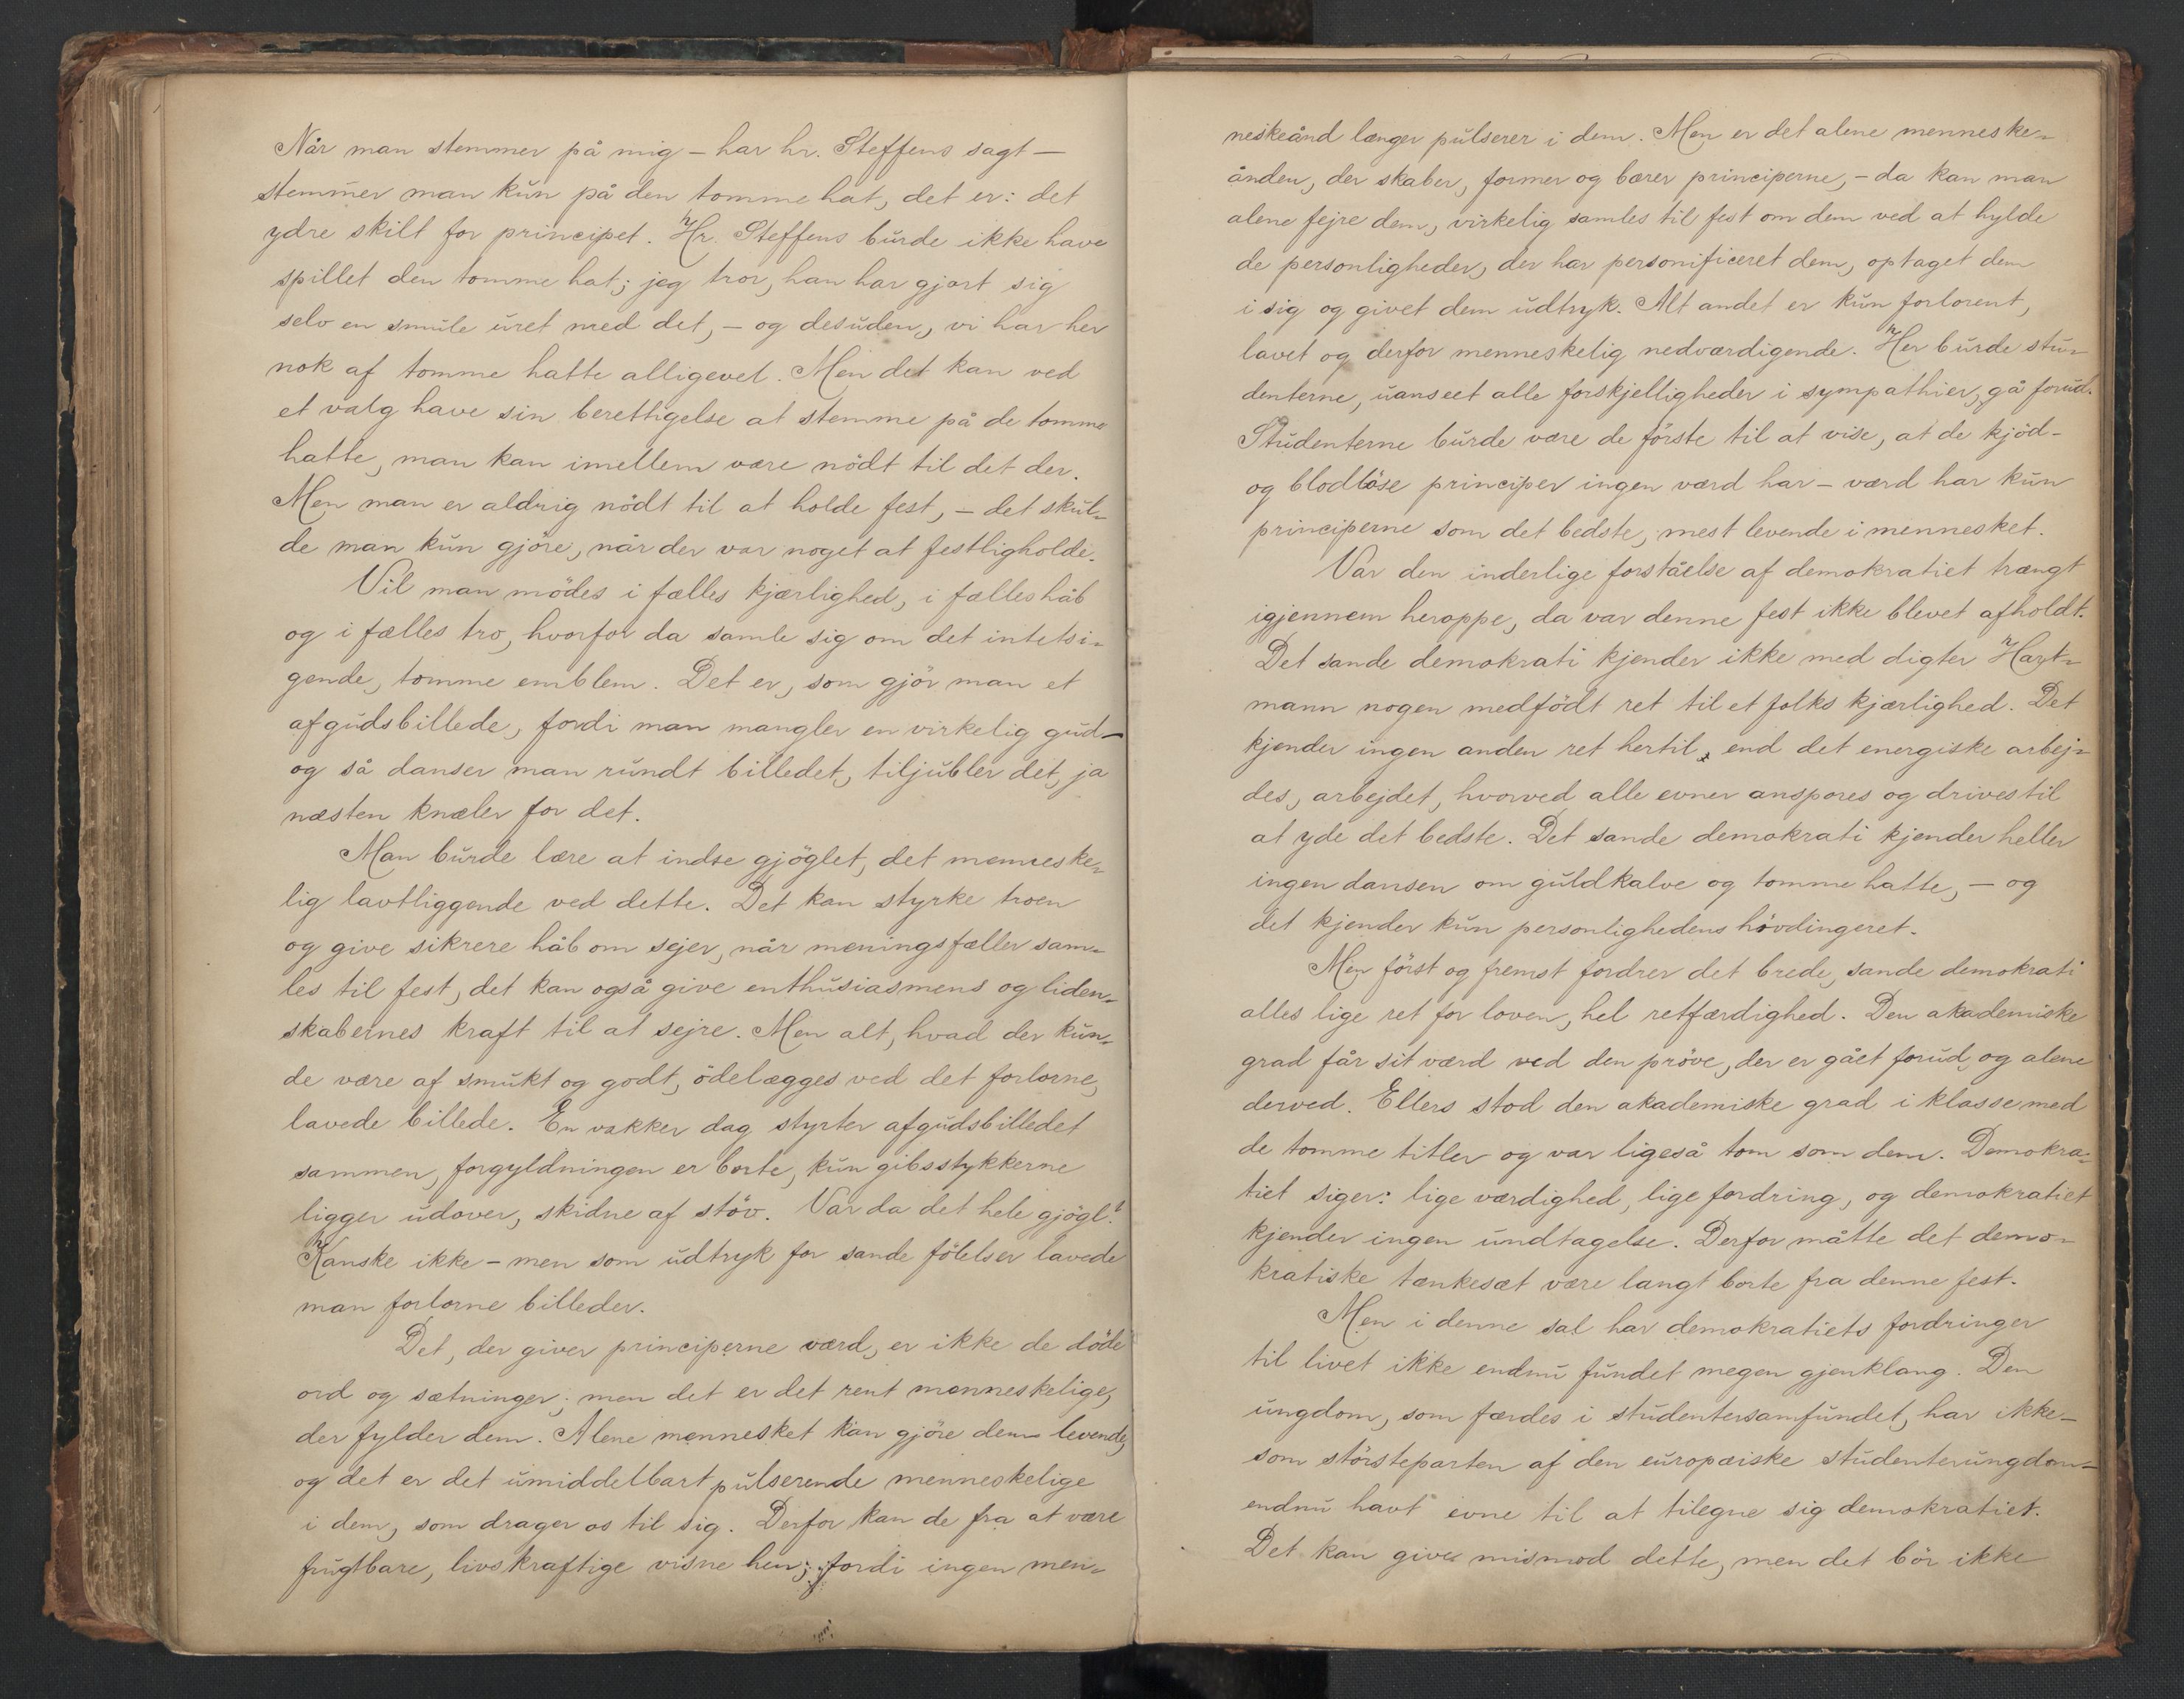 Når man stemmer på mig – har hr. Steffens sagt –
stemmer man kun på den tomme hat, det er: det
ydre skilt for principet. Hr. Steffens burde ikke have
spillet den tomme hat; jeg tror, han har gjort sig
selv en smule uret med det, – og desuden, vi har her
nok af tomme hatte alligevel. Men det kan ved
et valg have sin berettigelse at stemme på de tomme
hatte, man kan imellem være nödt til det der.
Men man er aldrig nödt til at holde fest, – det skul-
de man kun gjöre, når der var noget at festligholde.
Vil man mödes i fælles kjærlighed, i fælles håb
og i fælles tro, hvorfor da samle sig om det intetsi-
gende, tomme emblem. Det er, som gjör man et
afgudsbillede, fordi man mangler en virkelig gud –
og så danser man rundt billedet, tiljubler det, ja
næsten knæler for det.
Man burde lære at indse gjöglet, det menneske-
lig lavtliggende ved dette. Det kan styrke troen
og give sikrere håb om sejer, når meningsfæller sam-
les til fest, det kan også give enthusiasmens og liden-
skabernes kraft til at sejre. Men alt, hvad der kun-
de være af smukt og godt, ödelægges ved det forlorne,
lavede billede. En vakker dag styrter afgudsbilledet
sammen, forgyldningen er borte, kun gibsstykkerne
ligger udover, skidne af stöv. Var da det hele gjögl?
Kanske ikke – men som udtryk for sande fölelser lavede
man forlorne billeder.
Det, der giver principerne værd, er ikke de döde
ord og sætninger; men det er det rent menneskelige,
der fylder dem. Alene mennesket kan gjöre dem levende,
og det er det umiddelbart pulserende menneskelige
i dem, som drager os til sig. Derfor kan de fra at være
frugtbare, livskraftige visne hen; fordi ingen men-
neskeånd længer pulserer i dem. Men er det alene menneske-
ånden, der skaber, former og bærer principerne, – da kan man
alene fejre dem, virkelig samles til fest om dem ved at hylde
de personligheder, der har personificeret dem, optaget dem
i sig og givet dem udtryk. Alt andet er kun forlorent,
lavet og derfor menneskelig nedværdigende. Her burde stu-
denterne, uanseet alle forskjelligheder i sympathier, gå forud.
Studenterne burde være de förste til at vise, at de kjöd-
og blodlöse principer ingen værd har – værd har kun
principerne som det bedste, mest levende i mennesket.
Var den inderlige forståelse af demokratiet trængt
igjennem heroppe, da var denne fest ikke blevet afholdt.
Det sande demokrati kjender ikke med digter Hart-
mann nogen medfödt ret til et folks kjærlighed. Det
kjender ingen anden ret hertil, end det energiske arbej-
des, arbejdet, hvorved alle evner anspores og drives til
at yde det bedste. Det sande demokrati kjender heller
ingen dansen om guldkalve og tomme hatte, – og
det kjender kun personlighedens hövdingeret.
Men först og fremst fordrer det brede, sande demokrati
alles lige ret for loven, hel retfærdighed. Den akademiske
grad får sit værd ved den pröve, der er gået forud, og alene
derved. Ellers stod den akademiske grad i klasse med
de tomme titler og var ligeså tom som dem. Demokra-
tiet siger: lige værdighed, lige fordring, og demokratiet
kjender ingen undtagelse. Derfor måtte det demo-
kratiske tænkesæt være langt borte fra denne fest.
Men i denne sal har demokratiets fordringer
til livet ikke endnu fundet megen gjenklang. Den
ungdom, som færdes i studentersamfundet, har ikke –
som störsteparten af den europæiske studenterungdom –
endnu havt evne til at tilegne sig demokratiet.
Det kan give mismod dette, men det bör ikke